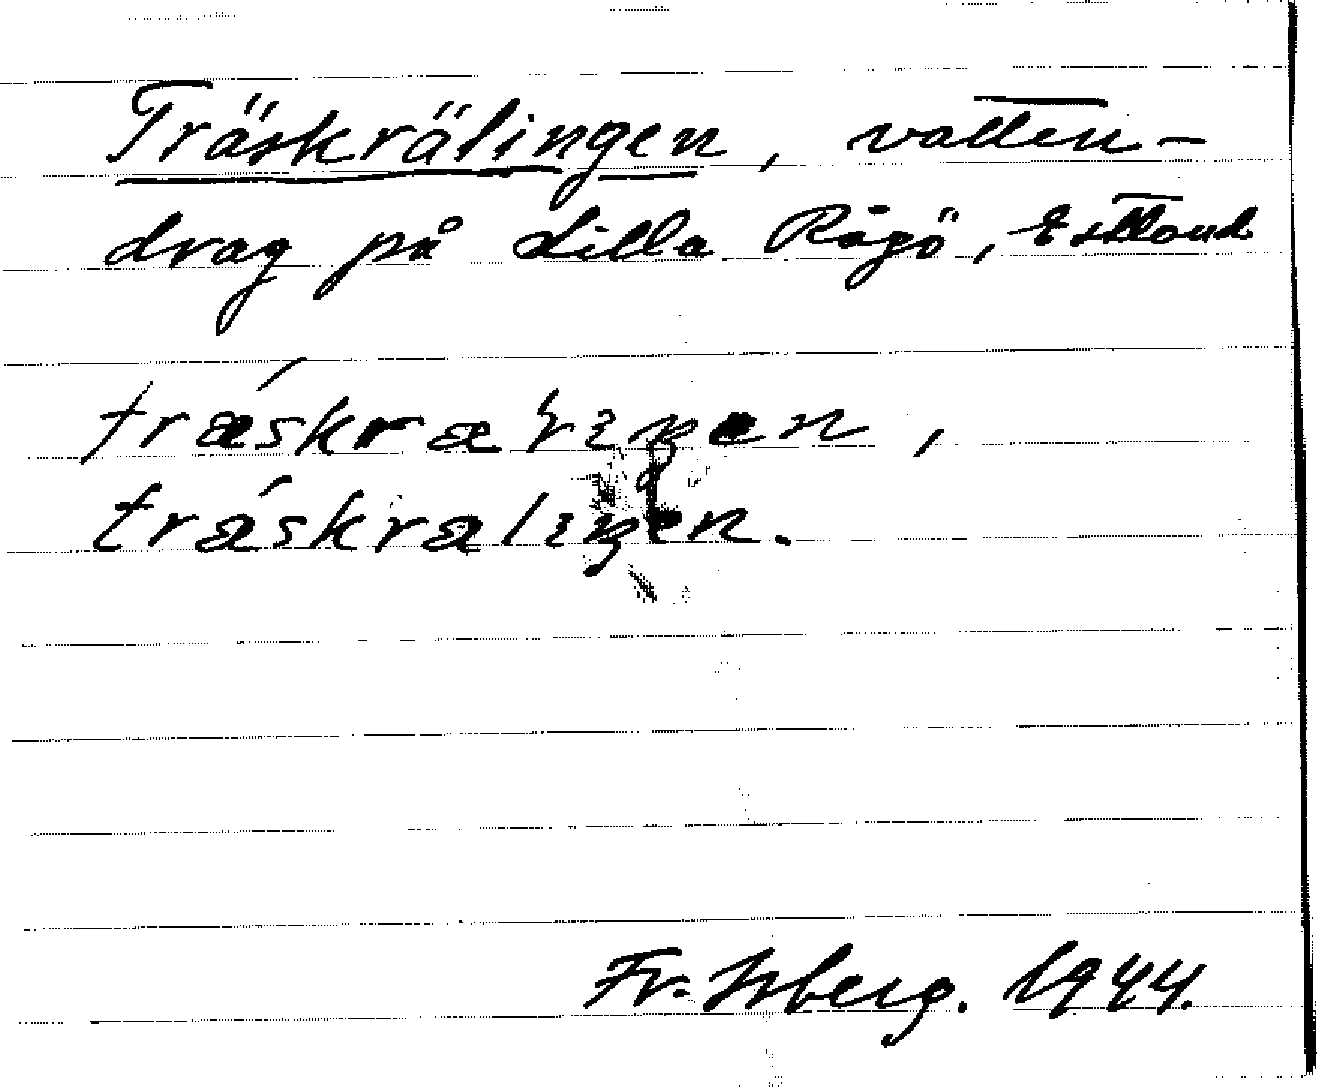 Träskrälingen, vatten-
drag på Lilla Rågö, Estland
træ´skrælıŋen,
træ´skrælıŋen.
Fr. Isberg. 1944.